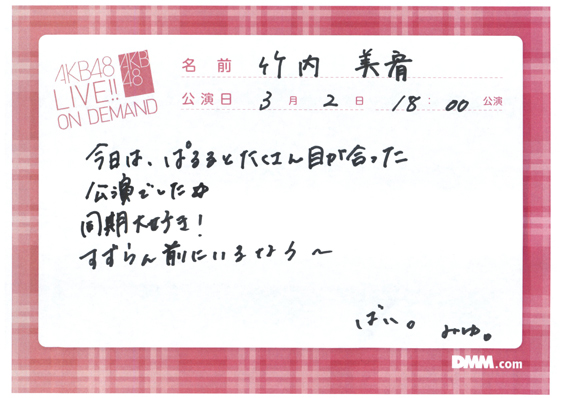 AKB48
LIVE!!
ON DEMAND
AKB
48
名前 竹内 美宥
公演日 3月2日 18:00 公演
今日は、ぱるるとたくさん目が合った
公演でした☆
同期大好き!
すずらん前にいるなら〜
ばい。 みゆ。
DMM.com